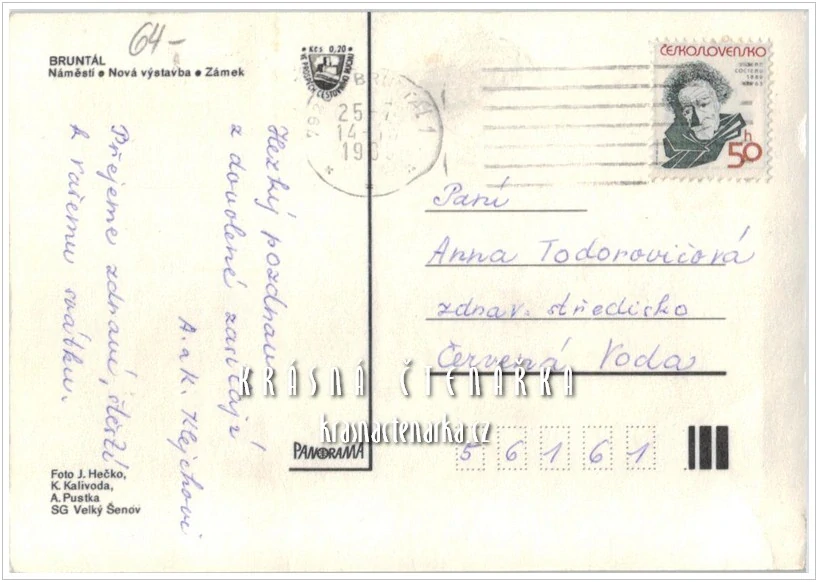 64-
BRUNTÁL
Náměstí • Nová výstavba • Zámek
Kčs 0,20
BRUNTÁL 1
25
14
198
ČESKOSLOVENSKO
50 h
Hezký pozdrav
z dovolené zasílají
A. a K. Klejchovi
Přejeme zdraví, štěstí
k vašemu svátku.
Paní
Anna Todorovičová
zdrav. středisko
Červená Voda
56161
KRÁSNÁ ČTENÁRKA
krasnactenarka.cz
PANORAMA
Foto J. Hečko,
K. Kalivoda,
A. Pustka
SG Velký Šenov